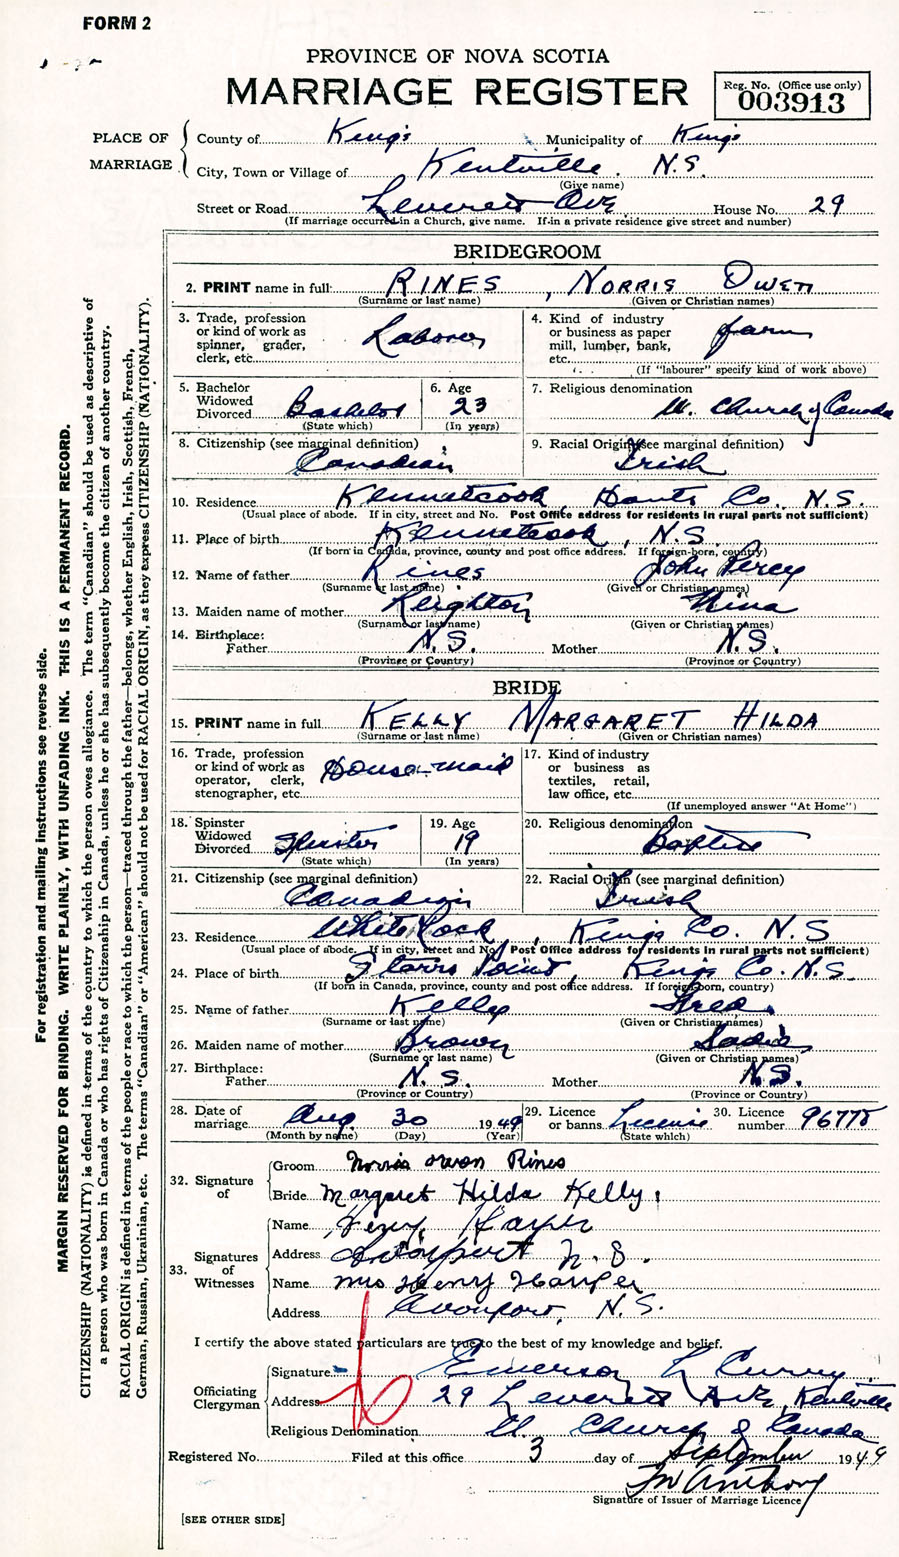 FORM 2
PROVINCE OF NOVA SCOTIA
MARRIAGE REGISTER
Reg. No. (Office use only)
003913
PLACE OF MARRIAGE
County of King's Municipality of Kings
City, Town or Village of Kentville. N.S.
(Give name)
Street or Road Leverett Ave House No. 29
(If marriage occurred in a Church, give name. If in a private residence give street and number)
BRIDEGROOM
2. PRINT name in full: RINES, NORRIS OWEN
(Surname or last name) (Given or Christian names)
3. Trade, profession or kind of work as spinner, grader, clerk, etc. Laborer
4. Kind of industry or business as paper mill, lumber, bank, etc. farm
(If "labourer" specify kind of work above)
5. Bachelor Widowed Divorced Bachelor
(State which)
6. Age 23
(In years)
7. Religious denomination U. Church of Canada
8. Citizenship (see marginal definition) Canadian
9. Racial Origin (see marginal definition) Irish
10. Residence Kennetcook Hants Co. N.S.
(Usual place of abode. If in city, street and No. Post Office address for residents in rural parts not sufficient)
11. Place of birth Kennetcook, N.S.
(If born in Canada, province, county and post office address. If foreign-born, country)
12. Name of father Rines John Percy
(Surname or last name) (Given or Christian names)
13. Maiden name of mother Leighton Nina
(Surname or last name) (Given or Christian names)
14. Birthplace:
Father N.S. Mother N.S.
(Province or Country) (Province or Country)
BRIDE
15. PRINT name in full KELLY MARGARET HILDA
(Surname or last name) (Given or Christian names)
16. Trade, profession or kind of work as operator, clerk, stenographer, etc. House-maid
17. Kind of industry or business as textiles, retail, law office, etc.
(If unemployed answer "At Home")
18. Spinster Widowed Divorced Spinster
(State which)
19. Age 19
(In years)
20. Religious denomination Baptist
21. Citizenship (see marginal definition) Canadian
22. Racial Origin (see marginal definition) Irish
23. Residence White Rock, Kings Co. N.S
(Usual place of abode. If in city, street and No. Post Office address for residents in rural parts not sufficient)
24. Place of birth Starrs Point, Kings Co. N.S.
(If born in Canada, province, county and post office address. If foreign-born, country)
25. Name of father Kelly Fred.
(Surname or last name) (Given or Christian names)
26. Maiden name of mother Brown Sadie
(Surname or last name) (Given or Christian names)
27. Birthplace:
Father N.S. Mother N.S.
(Province or Country) (Province or Country)
28. Date of marriage Aug 30 1949
(Month by name) (Day) (Year)
29. Licence or banns License
(State which)
30. Licence number 96778
32. Signature of
Groom Norris Owen Rines
Bride Margaret Hilda Kelly
33. Signatures of Witnesses
Name Henry Harper
Address Avonport N.S.
Name Mrs Henry Harper
Address Avonport, N.S.
I certify the above stated particulars are true to the best of my knowledge and belief.
Officiating Clergyman
Signature Emerson L Curry
Address 29 Leverett Ave, Kentville
Religious Denomination U. Church of Canada
Registered No. Filed at this office 3 day of September 1949
Signature of Issuer of Marriage Licence
[SEE OTHER SIDE]
For registration and mailing instructions see reverse side.
MARGIN RESERVED FOR BINDING. WRITE PLAINLY, WITH UNFADING INK. THIS IS A PERMANENT RECORD.
CITIZENSHIP (NATIONALITY) is defined in terms of the country to which the person owes allegiance. The term "Canadian" should be used as descriptive of
a person who was born in Canada or who has rights of Citizenship in Canada, unless he or she has subsequently become the citizen of another country.
RACIAL ORIGIN is defined in terms of the people or race to which the person—traced through the father—belongs, whether English, Irish, Scottish, French,
German, Russian, Ukrainian, etc. The terms "Canadian" or "American" should not be used for RACIAL ORIGIN, as they express CITIZENSHIP (NATIONALITY).